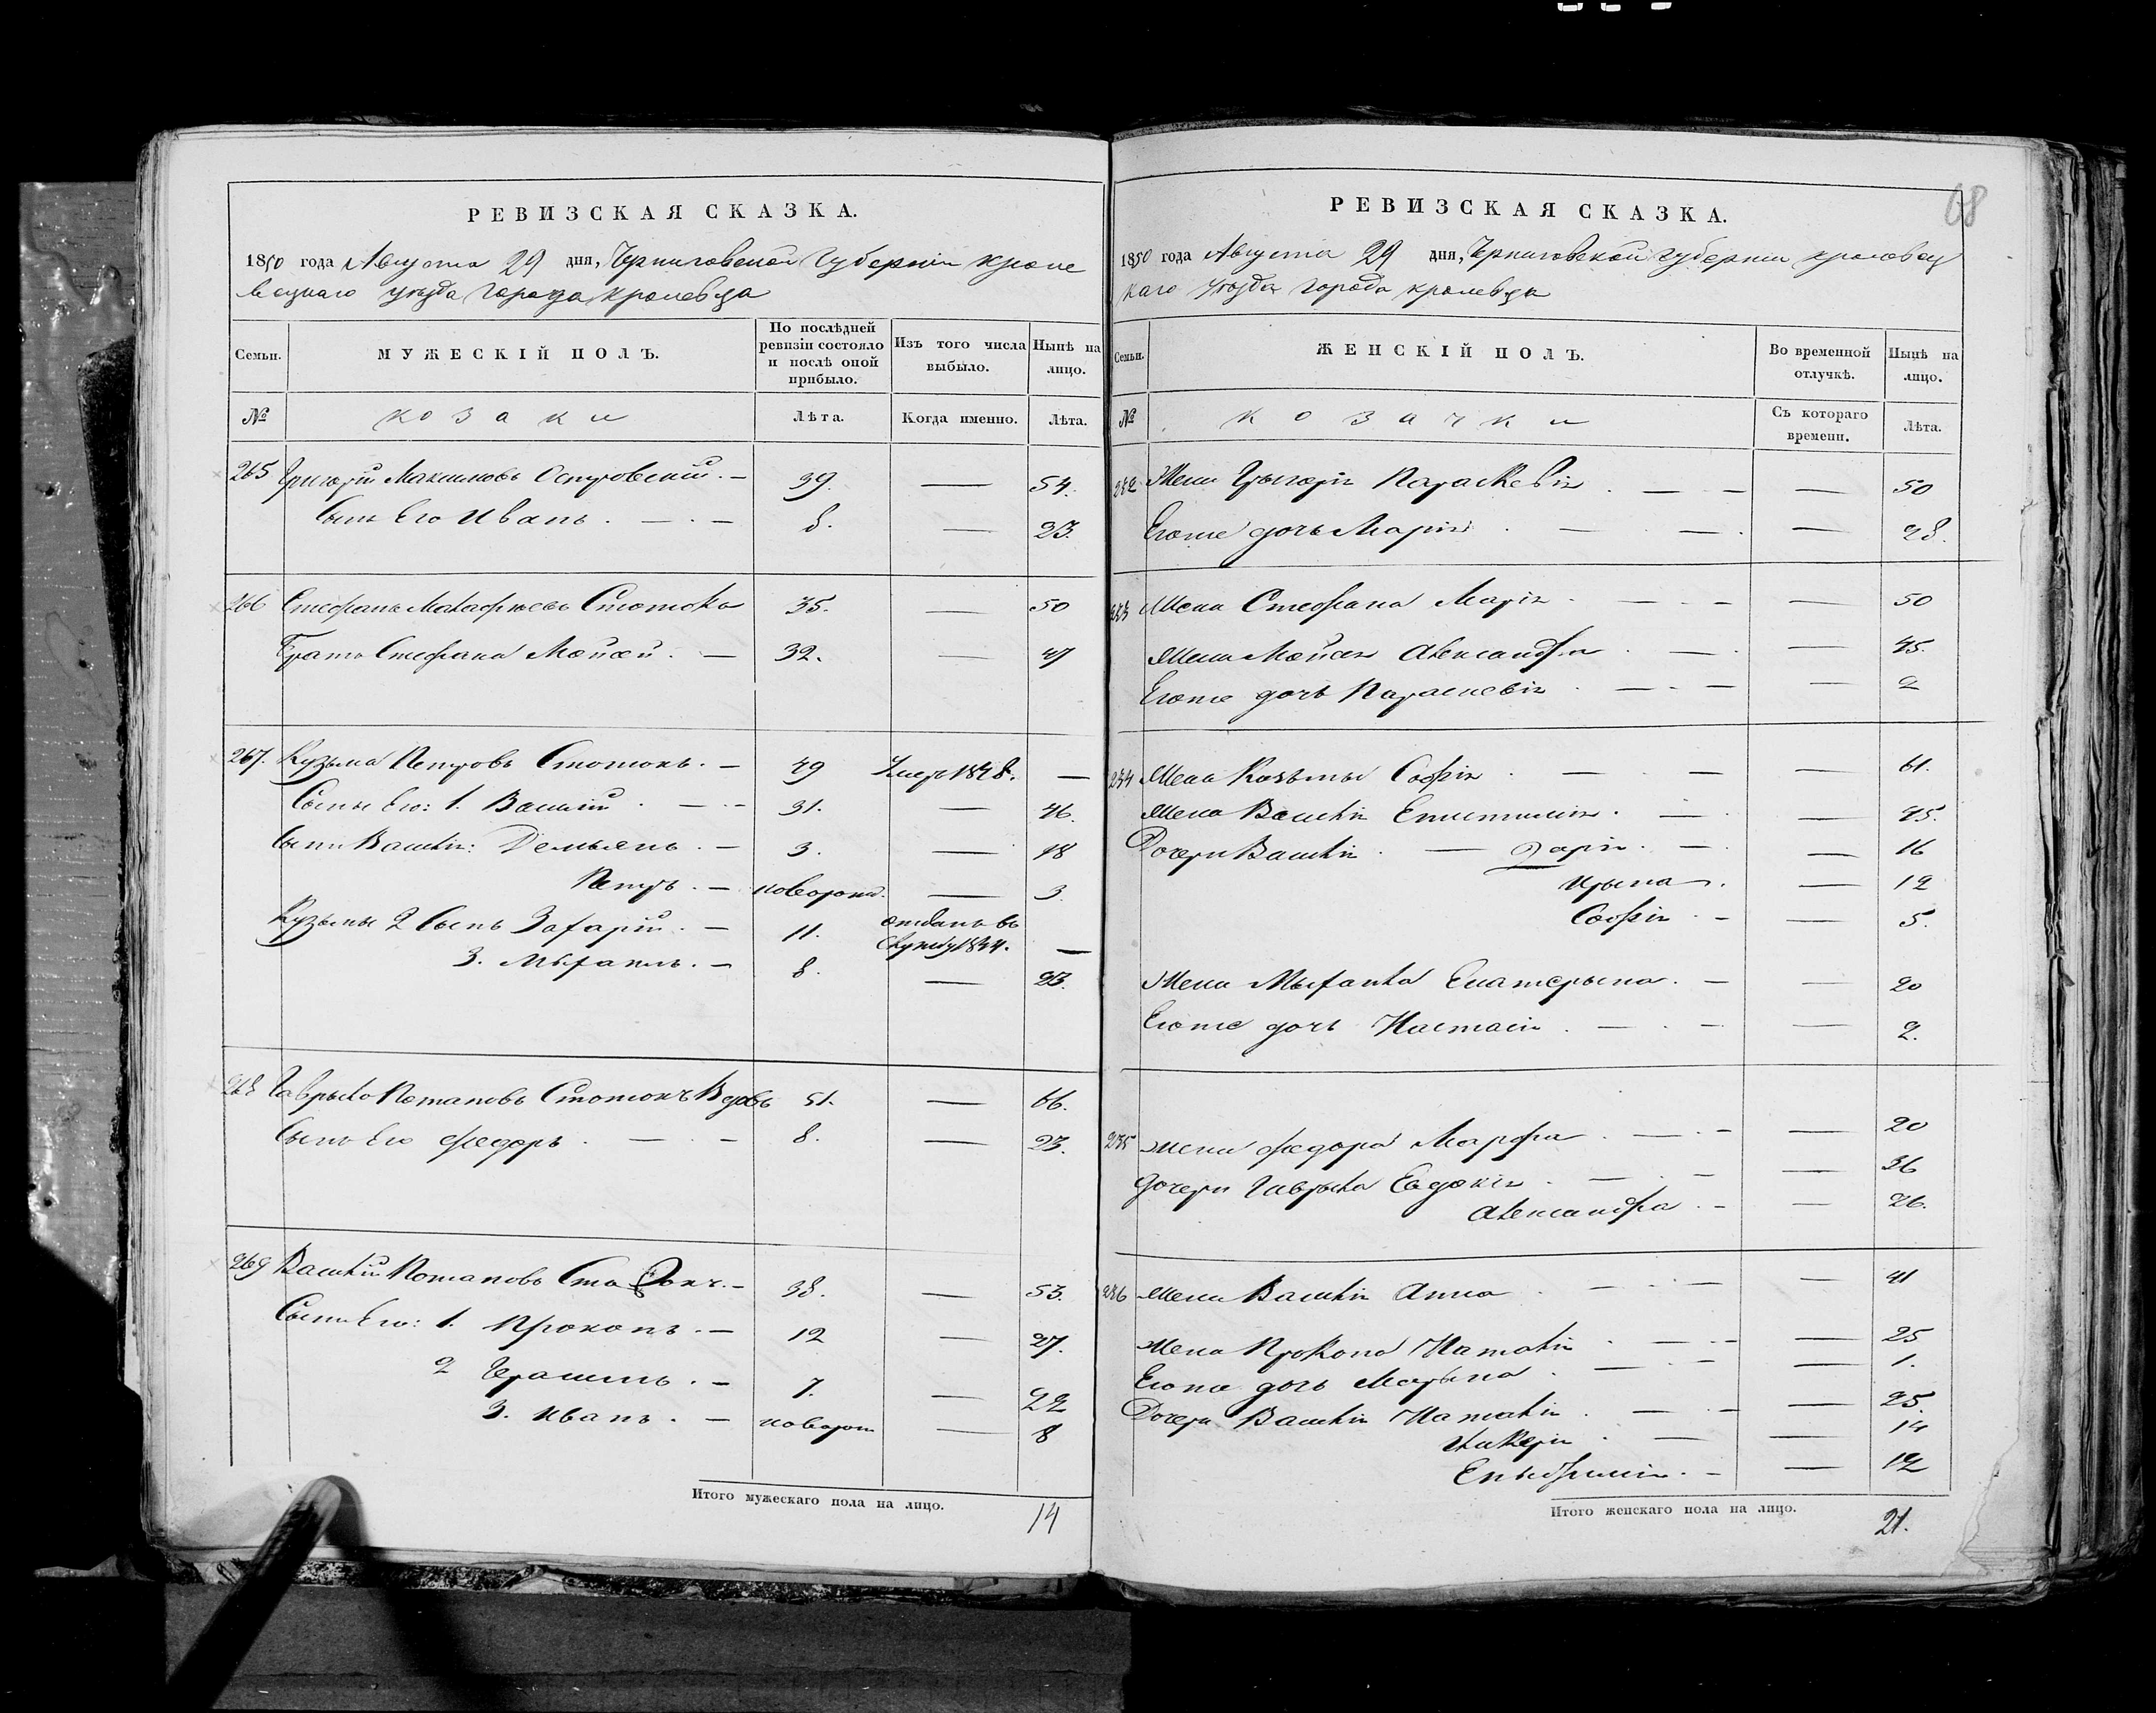 РЕВИЗСКАЯ СКАЗКА.
1850 года Августа 29 дня, Черниговской Губерніи Кроле
вецкаго уѣзда Города Кролевца
Семьи. МУЖЕСКІЙ ПОЛЪ. По послѣдней ревизіи состояло и послѣ оной прибыло. Изъ того числа выбыло. Нынѣ на лицо.
№ козаки Лѣта. Когда именно. Лѣта.
265 Григорій Максимовъ Островскій. — 39. — 54.
Сынъ Его Иванъ. — 8. — 23.
266 Стефанъ Макафіевъ Стотока 35. — 50
Братъ Стефана Мойсей. — 32. — 47
267. Кузьма Петровъ Стотокъ. — 49 Умеръ 1848. —
Сыны Его: 1. Василій — 31. — 46.
Сыны Василія: Демьянъ. — 3. — 18
Петръ. — новорожд. — 3.
Кузьмы 2 Сынъ Захарій. — 11. отданъ въ
службу 1844. —
3. Мыхаилъ. — 8. — 23.
268 Гаврыло Потаповъ Стотокъ Вдовъ 51. — 66.
Сынъ Его Федоръ. — 8. — 23.
269 Василій Потаповъ Стотокъ. — 38. — 53.
Сыны Его: 1. Прокопъ. — 12 — 27.
2 Герасимъ. — 7. — 22
3. Иванъ. — новорож — 8
Итого мужескаго пола на лицо. 14
68
РЕВИЗСКАЯ СКАЗКА.
1850 года Августа 29 дня, Черниговской Губерніи Кролевец
каго уѣзда Города Кролевца
Семьи. ЖЕНСКІЙ ПОЛЪ. Во временной отлучкѣ. Нынѣ на лицо.
№ козачки Съ котораго времени. Лѣта.
232 Жена Грыгорія Параскевія — — 50
Егоже дочь Марія — — 28.
233 Жена Стефана Марія — — 50
Жена Мойсея Александра — — 45.
Егоже дочь Параскевія — — 2
234 Жена Козьмы Софія — — 61.
Жена Василія Епистимія — — 45.
Дочери Василія — Дарія. — — 16
Ирына. — 12
Софія — — 5.
Жена Мыхаила Екатерына. — — 20
Егоже дочь Настасія — — 2.
235 Жена Федора Марфа — — 20
Дочери Гаврыла Евдокія — — 36
Александра. — — 26.
236 Жена Василія Анна — — 41
Жена Прокопа Наталія — — 25
Егоже дочь Марына — — 1.
Дочери Василія Наталія — — 25.
Гликерія — — 14
Епыстимія. — — 12
Итого женскаго пола на лицо. 21.